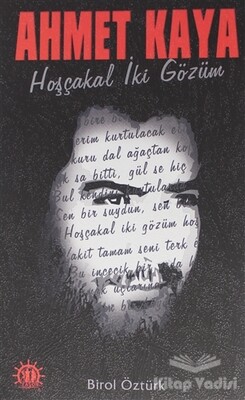 AHMET KAYA
Hoşçakal İki Gözüm
bire b
erim kurtulacak e
kuru dal ağaçtan ko
k sa bitti, gül se hiç
Bul kendini
en bir suydun, sen b
Hoşçakal iki gözüm hoş
akit tamam seni terk e
Bu incecik bir
uçlarınd
Birol Öztürk
Kitap Vadisi